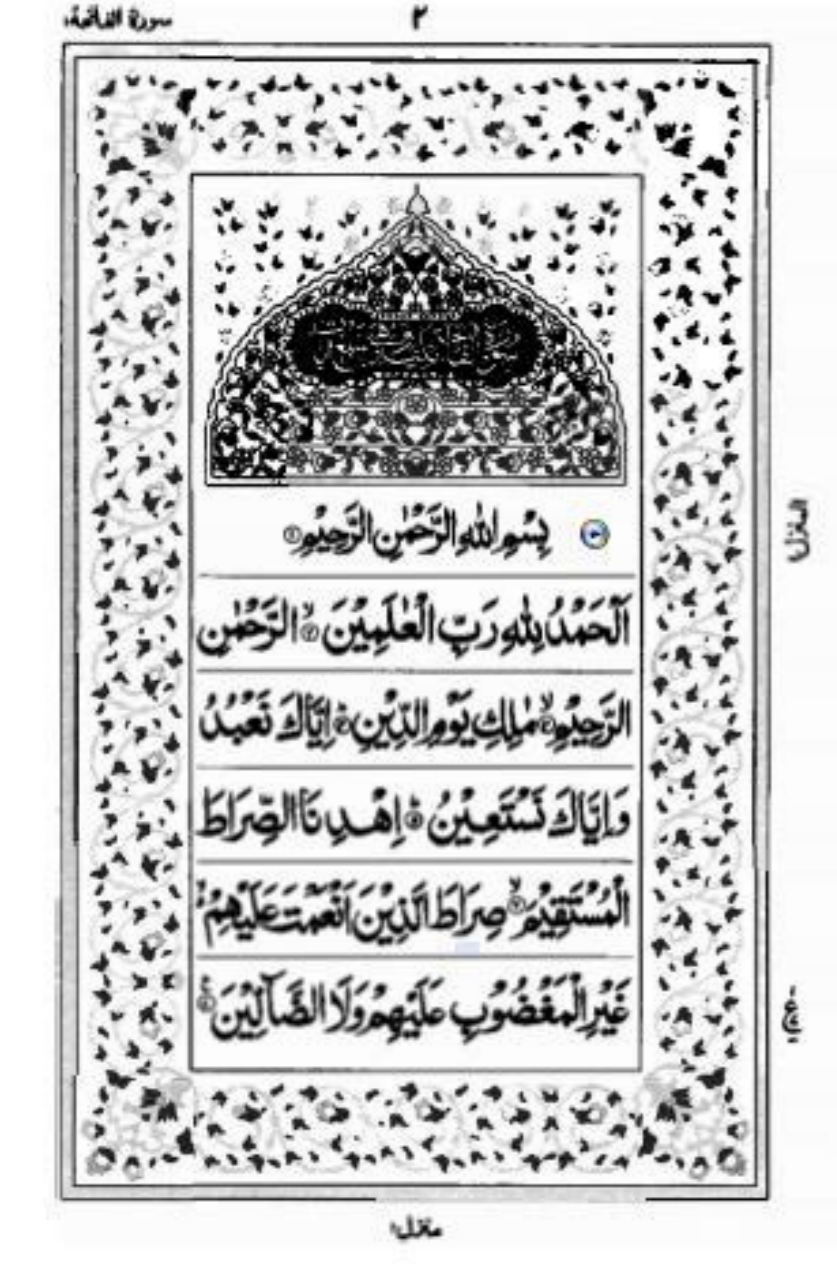 سورة الفاتحة ١
٢
بِسْمِ اللّٰهِ الرَّحْمٰنِ الرَّحِيْمِ ①
اَلْحَمْدُ لِلّٰهِ رَبِّ الْعٰلَمِيْنَ ۙ② الرَّحْمٰنِ
الرَّحِيْمِ ۙ③ مٰلِكِ يَوْمِ الدِّيْنِ ④ اِيَّاكَ نَعْبُدُ
وَاِيَّاكَ نَسْتَعِيْنُ ⑤ اِهْدِنَا الصِّرَاطَ
الْمُسْتَقِيْمَ ۙ⑥ صِرَاطَ الَّذِيْنَ اَنْعَمْتَ عَلَيْهِمْ
غَيْرِ الْمَغْضُوْبِ عَلَيْهِمْ وَلَا الضَّآلِّيْنَ ⑦
منزل ١